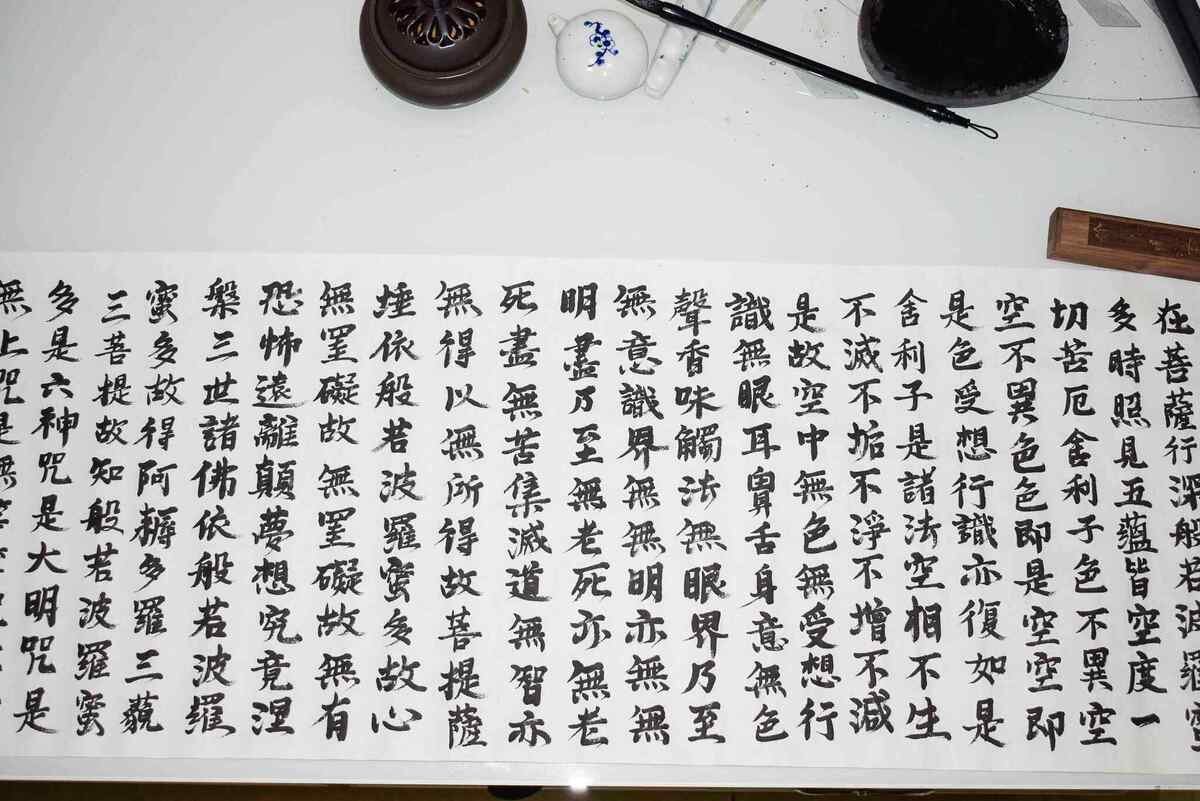 在菩薩行深般若波羅蜜
多時照見五蘊皆空度一
切苦厄舍利子色不異空
空不異色色即是空空即
是色受想行識亦復如是
舍利子是諸法空相不生
不滅不垢不淨不增不減
是故空中無色無受想行
識無眼耳鼻舌身意無色
聲香味觸法無眼界乃至
無意識界無無明亦無無
明盡乃至無老死亦無老
死盡無苦集滅道無智亦
無得以無所得故菩提薩
埵依般若波羅蜜多故心
無罣礙故無罣礙故無有
恐怖遠離顛夢想究竟涅
槃三世諸佛依般若波羅
蜜多故得阿耨多羅三藐
三菩提故知般若波羅蜜
多是六神咒是大明咒是
無上咒是無